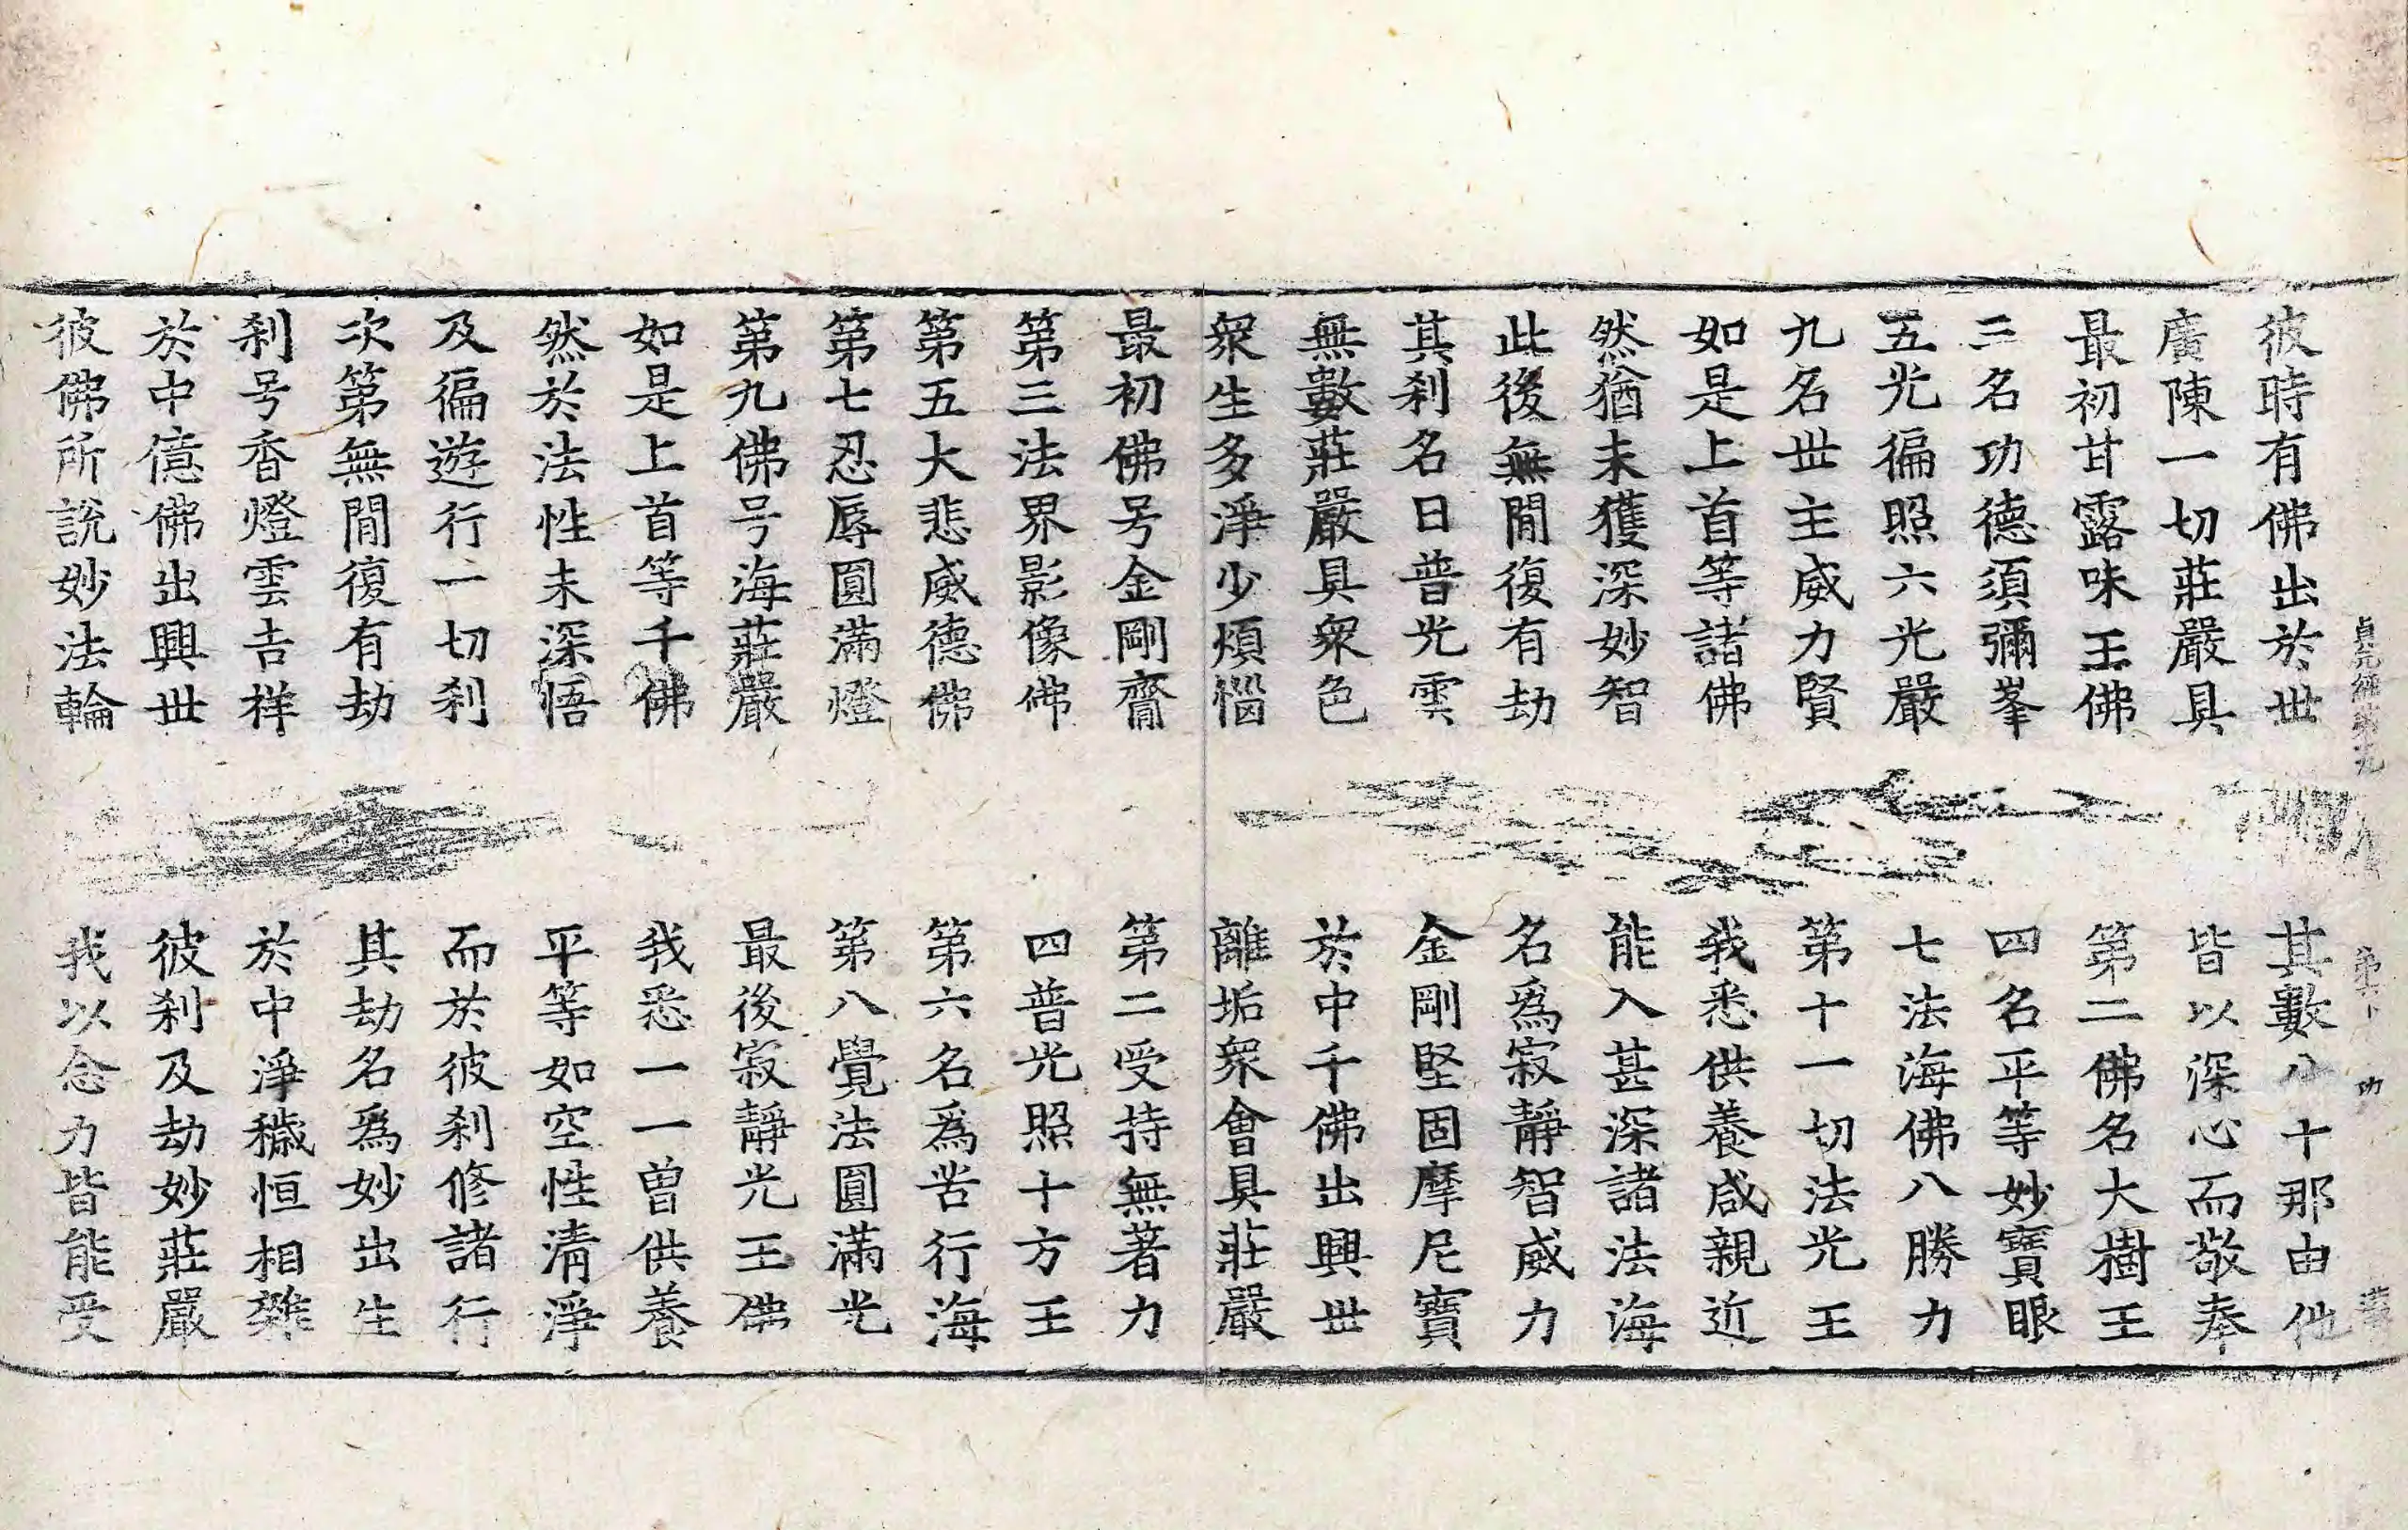 貞元經第九 第六下 功
彼時有佛出於世 其數八十那由他
廣陳一切莊嚴具 皆以深心而敬奉
最初甘露味王佛 第二佛名大樹王
三名功德須彌峯 四名平等妙寶眼
五光徧照六光嚴 七法海佛八勝力
九名世主威力賢 第十一切法光王
如是上首等諸佛 我悉供養咸親近
然猶未獲深妙智 能入甚深諸法海
此後無閒復有劫 名爲寂靜智威力
其刹名曰普光雲 金剛堅固摩尼寶
無數莊嚴具衆色 於中千佛出興世
衆生多淨少煩惱 離垢衆會具莊嚴
最初佛号金剛齋 第二受持無著力
第三法界影像佛 四普光照十方王
第五大悲威德佛 第六名爲苦行海
第七忍辱圓滿燈 第八覺法圓滿光
第九佛号海莊嚴 最後寂靜光王佛
如是上首等千佛 我悉一一曾供養
然於法性未深悟 平等如空性淸淨
及徧遊行一切刹 而於彼刹修諸行
次第無閒復有劫 其劫名爲妙出生
刹号香燈雲吉祥 於中淨穢恒相雜
於中億佛出興世 彼刹及劫妙莊嚴
彼佛所說妙法輪 我以念力皆能受